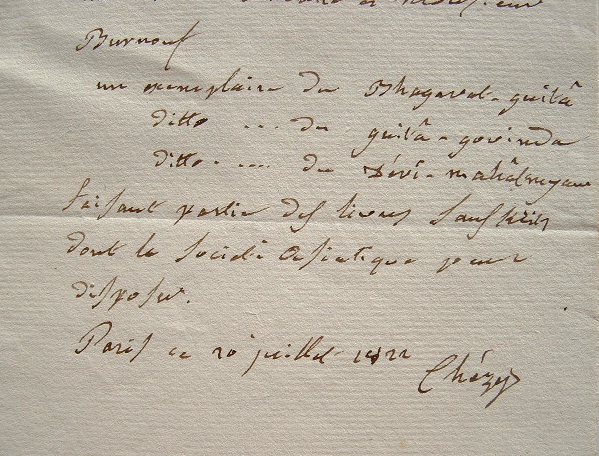 Monsieur
Burnouf
un exemplaire du Bhagavat-guîtâ
ditto .... du guîtâ-govinda
ditto. .... du Dévî-mahâtmyam
faisant partie des livres Sanskrits
dont la Société asiatique peut
disposer.
Paris ce 20 juillet 1822
Chézy